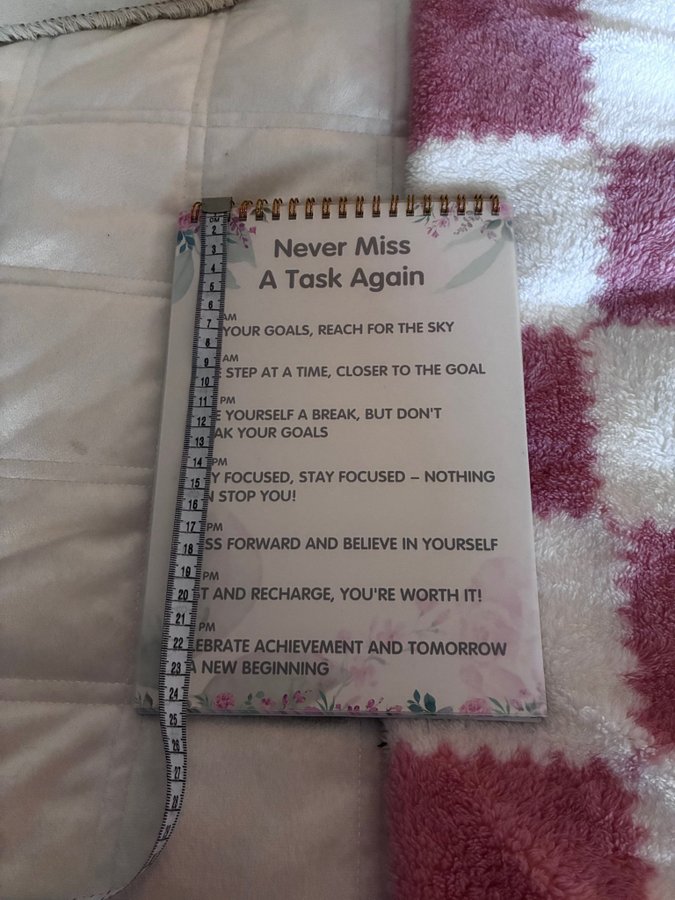 Never Miss
A Task Again
AM
YOUR GOALS, REACH FOR THE SKY
AM
STEP AT A TIME, CLOSER TO THE GOAL
PM
E YOURSELF A BREAK, BUT DON'T
AK YOUR GOALS
PM
Y FOCUSED, STAY FOCUSED – NOTHING
N STOP YOU!
PM
SS FORWARD AND BELIEVE IN YOURSELF
PM
T AND RECHARGE, YOU'RE WORTH IT!
PM
EBRATE ACHIEVEMENT AND TOMORROW
A NEW BEGINNING
2
3
4
5
6
7
8
9
10
11
12
13
14
15
16
17
18
19
20
21
22
23
24
25
26
27
28